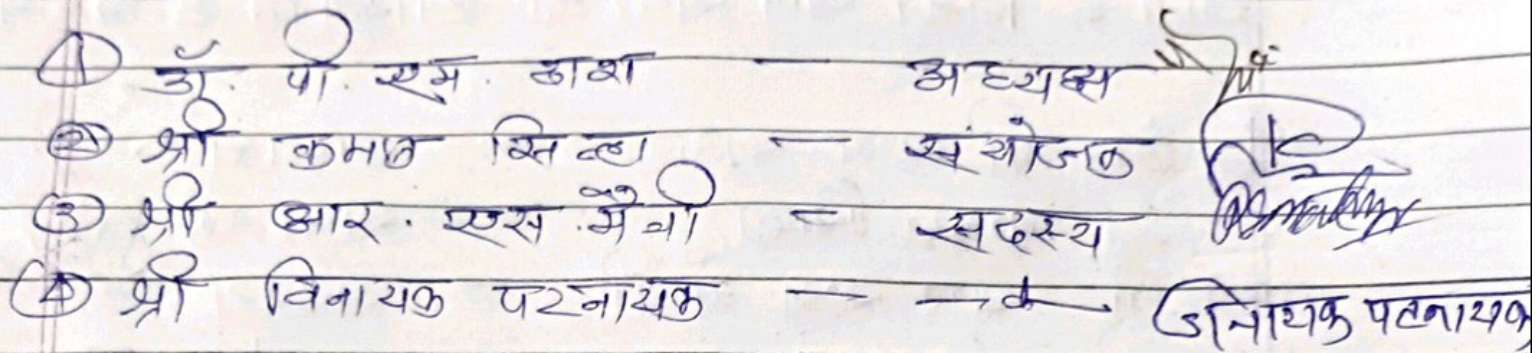 ① डॉ. पी. एम. दाश — अध्यक्ष
② श्री कमल सिन्हा — संयोजक
③ श्री आर. एस. मैत्री — सदस्य
④ श्री विनायक पटनायक — —"— विनायक पटनायक